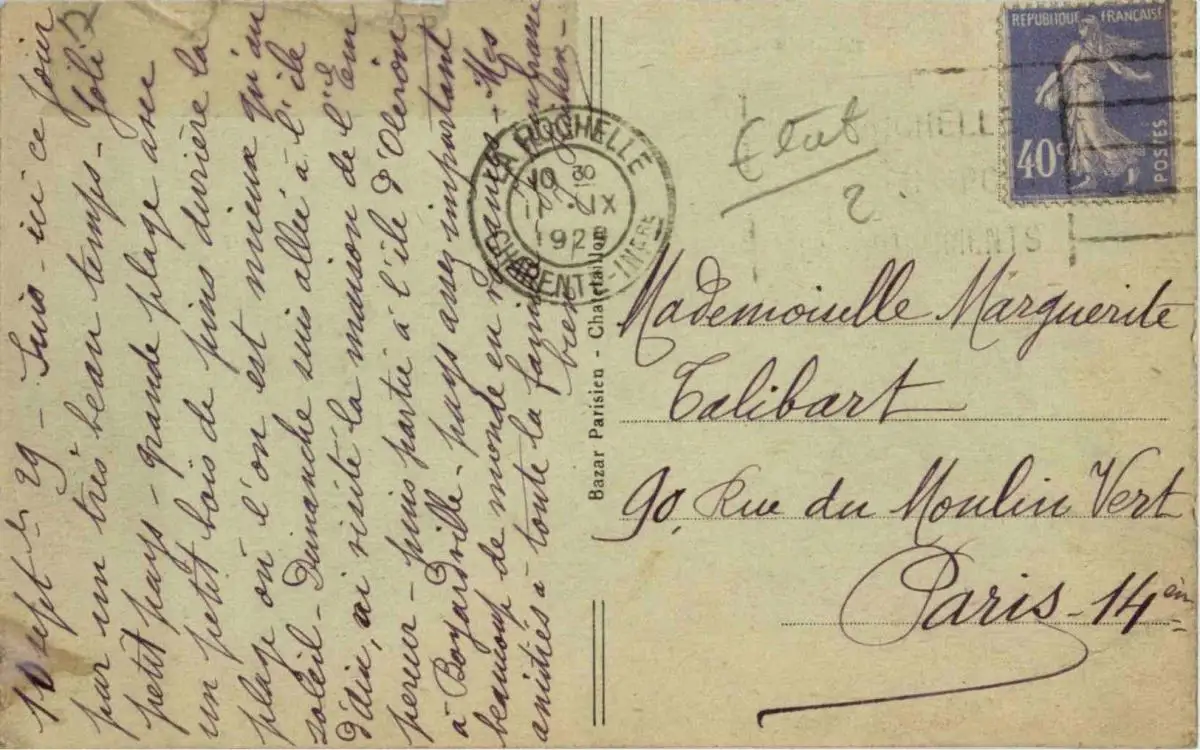 10 Septbr 29 - Suis-ici ce jour
par un très beau temps - Joli
petit pays - grande plage avec
un petit bois de pins derrière la
plage où l'on est mieux qu'au
soleil - Dimanche suis allée à l'île
d'Aix, ai visité la maison de l'Em
pereur - puis partie à l'île d'Oleron
à Boyardville - pays assez important
beaucoup de monde en - Mes
amitiés à toute la famille
bien
Bazar Parisien - Chatelaillon
LA ROCHELLE
10 30
11 IX
192
CHARENTE-INFRE
Etat
2
REPUBLIQUE FRANÇAISE
40c
POSTES
Mademoiselle Marguerite
Talibart
90, Rue du Moulin Vert
Paris - 14èm